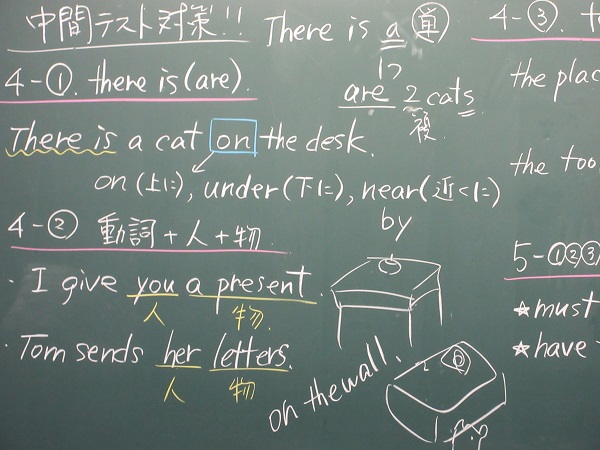 中間テスト対策!!
4-①. there is (are).
There is a 単
1つ
are 2 cats.
複
There is a cat on the desk.
on (上に), under (下に), near (近くに)
by
4-② 動詞+人+物.
・I give you a present.
人 物.
・Tom sends her letters.
人 物
on the wall.
4-③. t
the plac
the too
5-①②③
☆must
☆have